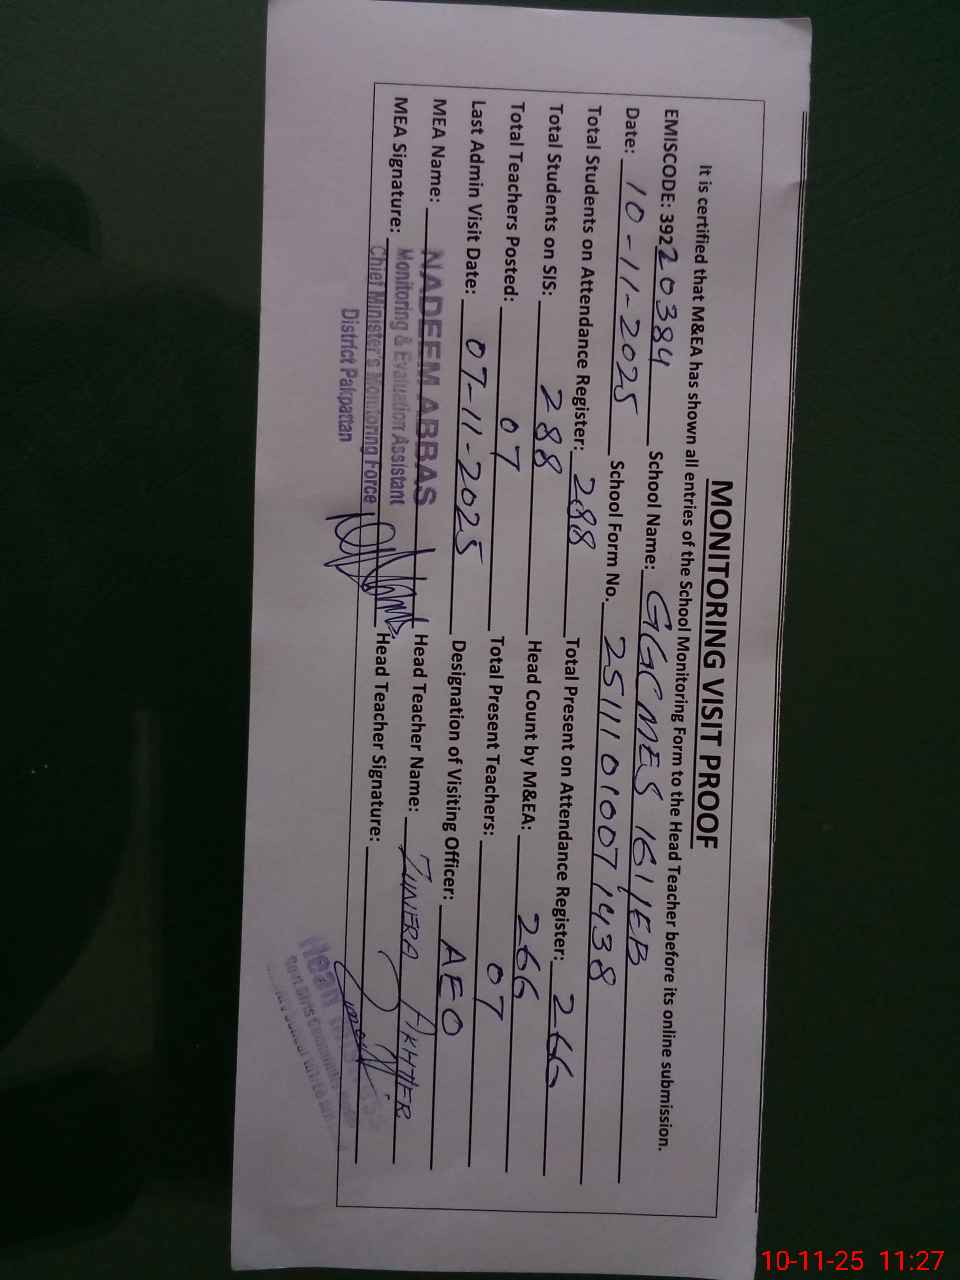 MONITORING VISIT PROOF
It is certified that M&EA has shown all entries of the School Monitoring Form to the Head Teacher before its online submission.
EMISCODE: 39220384 School Name: GGCMES 161/EB
Date: 10-11-2025 School Form No. 2511101007 1438
Total Students on Attendance Register: 288 Total Present on Attendance Register: 266
Total Students on SIS: 288 Head Count by M&EA: 266
Total Teachers Posted: 07 Total Present Teachers: 07
Last Admin Visit Date: 07-11-2025 Designation of Visiting Officer: AEO
MEA Name: NADEEM ABBAS Head Teacher Name: ZUNERA AKHTER
Monitoring & Evaluation Assistant
MEA Signature: Chief Minister's Monitoring Force Head Teacher Signature:
District Pakpattan
10-11-25 11:27